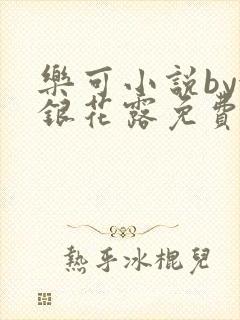 樂可小說by
銀花露免費
熱乎冰棍兒